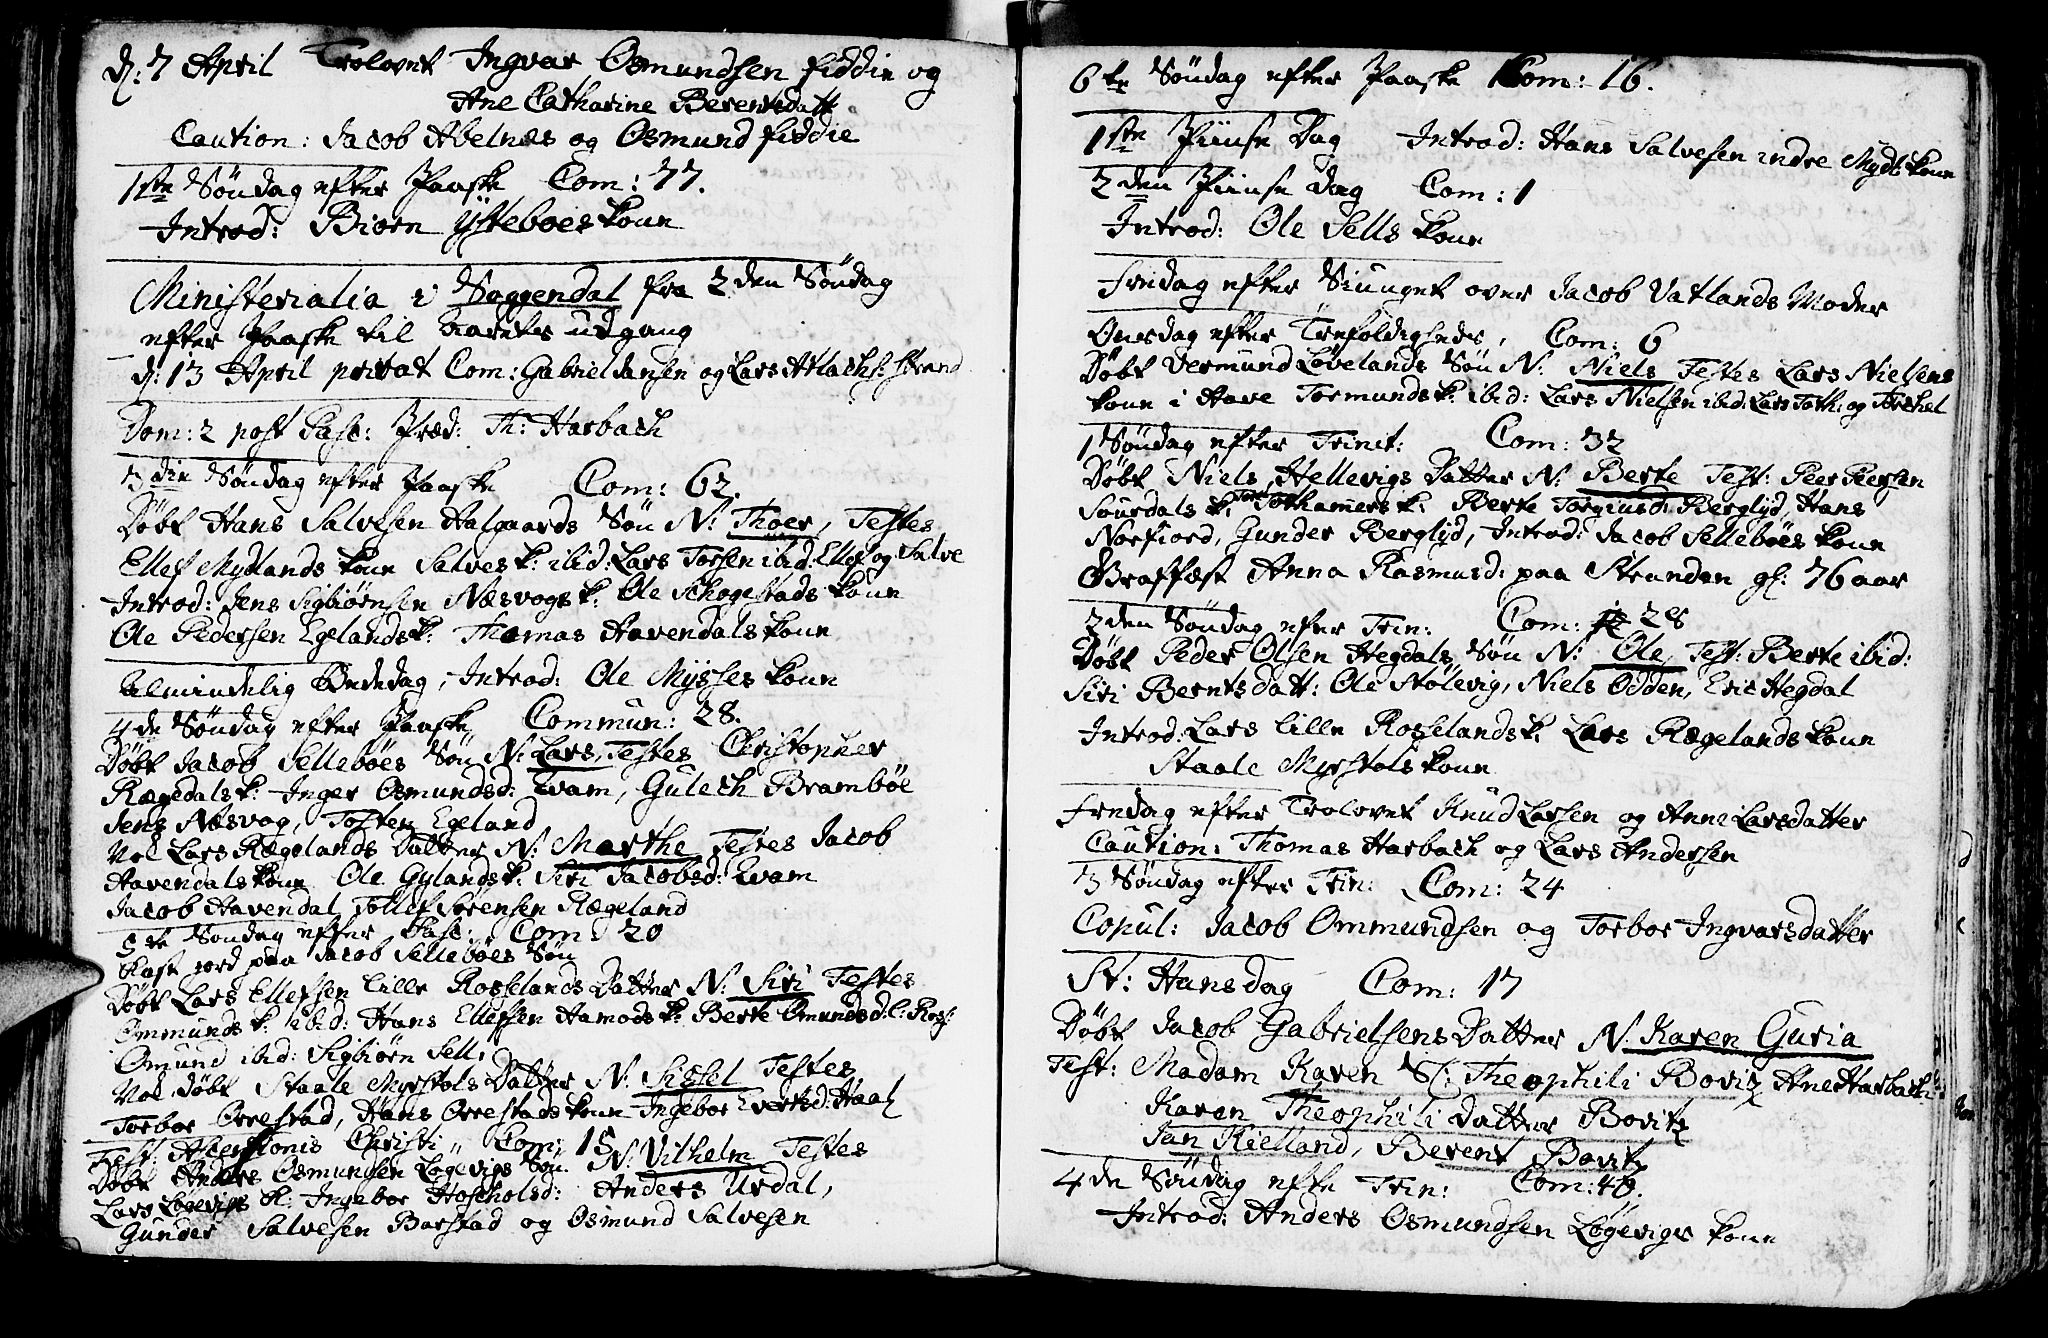 d: 7 April Trolovet Ingvar Osmundsen fiddie og
Ane Catharine Berentsdatt
Caution: Jacob Abelnæs og Osmund fiddie
1ste Søndag efter Paaske Com: 77.
Introd: Biørn Ÿsteboes kone
Ministerialia i Soggendal fra 2den Søndag
efter Paaske til Aarets udgang
d: 13 April privat Com: Gabriel Jansen og Lars Atlachs: Strand
Dom: 2 post Pasc: Præd: Th: Harbach
3die Søndag efter Paaske Com: 62.
Døbt Hans Salvesen Aalgaards Søn N: Thoer, Testes
Ellef Mydlands kone Salves k: ibid: Lars Torsen ibid: Ellef og Salve
Introd: Jens Sigbiørnsen Næsvogs k: Ole Schogestads kone
Ole Pedersen Egelands k: Thomas Havendals kone
Almindelig Bededag, Introd: Ole Mÿsses kone
4de Søndag efter Paaske, Commun: 28.
Døbt Jacob Sellebøes Søn N: Lars, Testes Christopher
Rægedals k: Inger Osmundsd: Evam, Gulech Brambøe
Jens Næsvog, Tosten Egeland
Nok Lars Rægelands Datter N: Marthe Testes Jacob
Havendals kone Ole Gylands k: Siri Jacobsd: Evam
Jacob Havendal, Tollef Sørensen Rægeland
5te Søndag efter Pasc: Com: 20
Kast jord paa Jacob Sellebøes Søn
Døbt Lars Ellefsen lille Rosselands Datter N: Siri Testes
Ommunds k: ibid: Hans Ellefsen Hamods k: Berte Omundsd: l: Ross:
Omund ibid: Sigbiørn Sell,
Nok Døbt Staale Myrstols Datter N: Sissel Testes
Torbor Orrestad, Hans Orrestads kone Ingebor Evertsd: Haal
Fest: Ascensionis Christi, Com: 15
Døbt Anders Osmunsen Løgevigs Søn N: Vilhelm Testes
Lars Løgevigs k: Ingebor Hoscholsd: Anders Urdal,
Gunder Salvesen Barstad og Osmund Salvesen
6te Søndag efter Paaske Com: 16.
1ste Pinse Dag Introd: Hans Salvesen indre Mydl: kone
2den Pinse Dag Com: 1
Introd: Ole Sells kone
Fredag efter Siunget over Jacob Vatlands Moder
Onsdag efter Trefoldigheds, Com: 6
Døbt Vermund Løvelands Søn N: Niels Testes Lars Nielsens
kone i Aave Tormunds k: ibid: Lars Nielsen ibid: Lars Toth: og Torchel
1 Søndag efter Trinit: Com: 32
Døbt Niels Hellevigs Datter N: Berte Test: Peer Peersen
Sourdals k: Tothamers k: Berte Torgiusd: Berglyd, Hans
Norfiord, Gunder Berglyd, Introd: Jacob Sellebøes kone
Graffæst Anna Rasmusd: paa Stranden gl: 76 aar
2den Søndag efter Trin: Com: 28
Døbt Peder Olsen Hegdals Søn N: Ole, Test: Berte ibid:
Siri Berntsdatt: Ole Stølevig, Niels Odden, Eric Hegdal
Introd: Lars lille Roselands k: Lars Rægelands kone
Staale Myrstols kone
Fredag efter Trolovet Knud Larsen og Anne Larsdatter
Caution: Thomas Harbach og Lars Andersen
3 Søndag efter Trin: Com: 24
Copul: Jacob Ommundsen og Torbor Ingvarsdatter
St: Hansdag Com: 17
Døbt Jacob Gabrielsens Datter N. Karen Guria
Test: Madam Karen Sl: Theophili Bovitz Ane Harbachs
Karen Theophili datter Bovitz
Jan Kielland, Berent Bovitz
4de Søndag efte Trin: Com: 40.
Introd: Anders Osmundsen Løgeviges kone